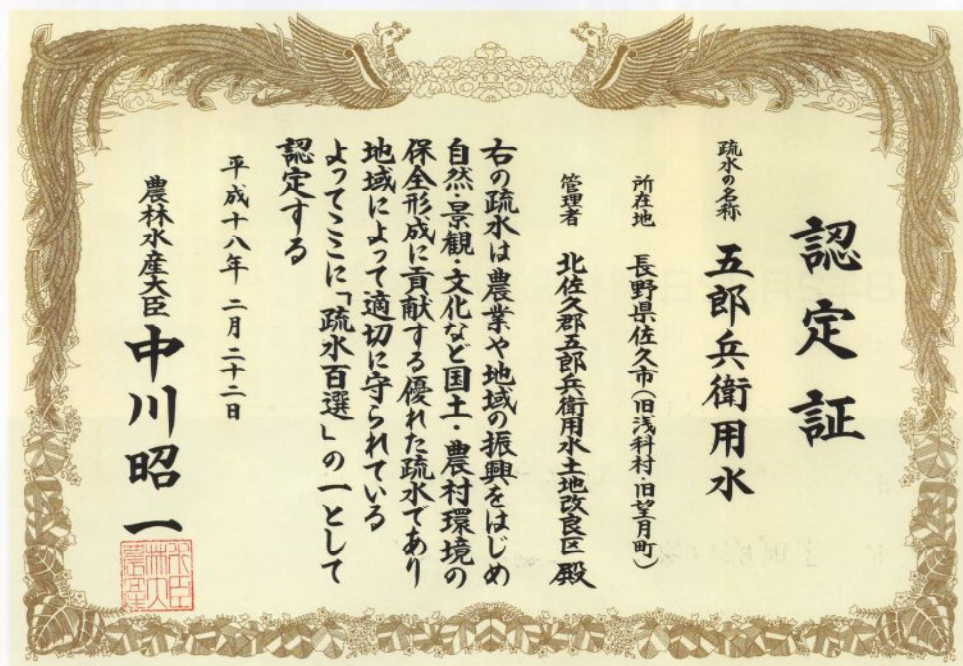 認定証
疏水の名称 五郎兵衛用水
所在地 長野県佐久市(旧浅科村・旧望月町)
管理者 北佐久郡五郎兵衛用水土地改良区 殿
右の疏水は農業や地域の振興をはじめ
自然・景観・文化など国土・農村環境の
保全形成に貢献する優れた疏水であり
地域によって適切に守られている
よってここに「疏水百選」の一として
認定する
平成十八年 二月二十二日
農林水産大臣 中川昭一